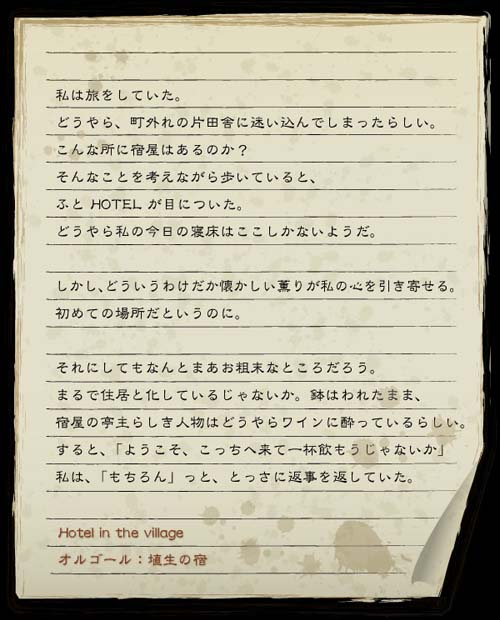 私は旅をしていた。
どうやら、町外れの片田舎に迷い込んでしまったらしい。
こんな所に宿屋はあるのか？
そんなことを考えながら歩いていると、
ふと HOTEL が目についた。
どうやら私の今日の寝床はここしかないようだ。
しかし､どういうわけだか懐かしい薫りが私の心を引き寄せる。
初めての場所だというのに。
それにしてもなんとまあお粗末なところだろう。
まるで住居と化しているじゃないか。鉢はわれたまま、
宿屋の亭主らしき人物はどうやらワインに酔っているらしい。
すると、「ようこそ、こっちへ来て一杯飲もうじゃないか」
私は、「もちろん」っと、とっさに返事を返していた。
Hotel in the village
オルゴール：埴生の宿